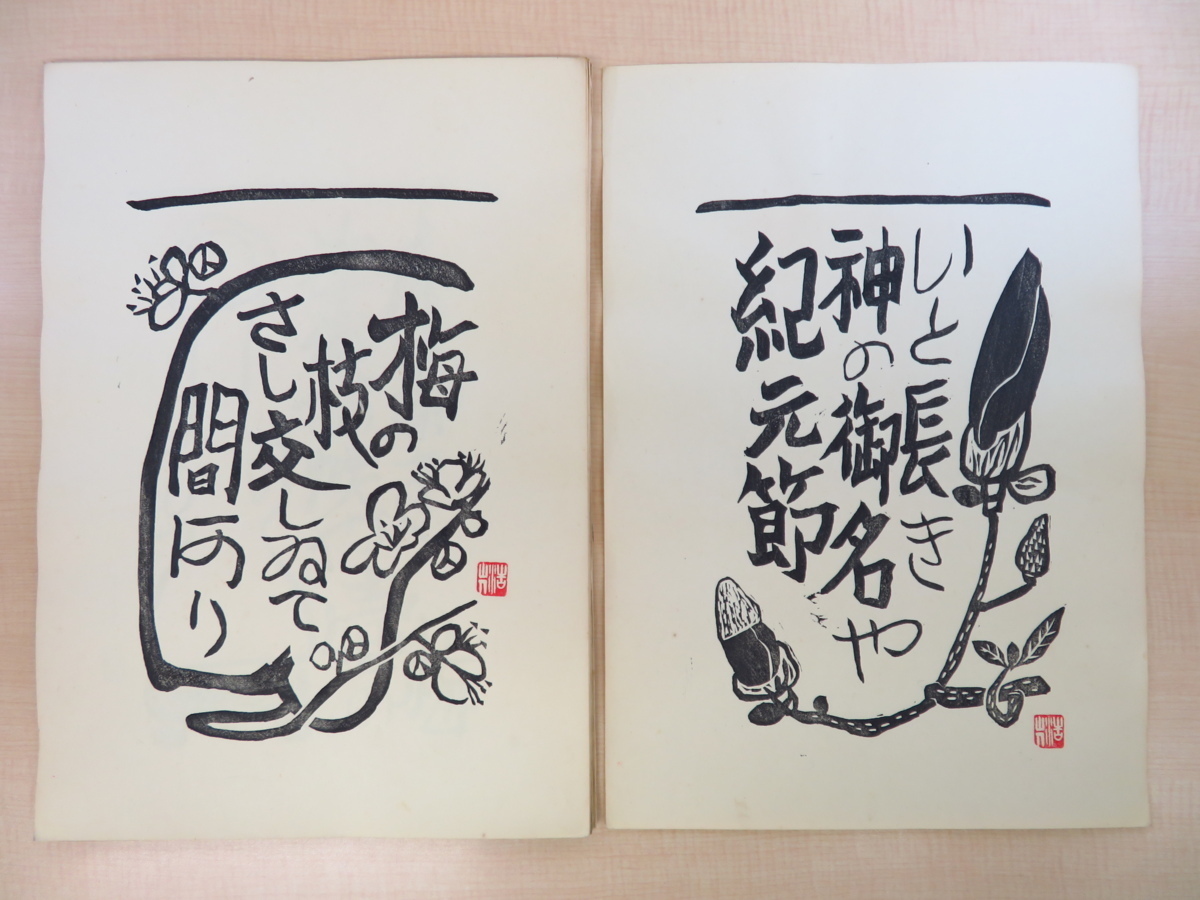 梅の
枝
さし交しゐて
間あり
いと長き
神の御名や
紀元節